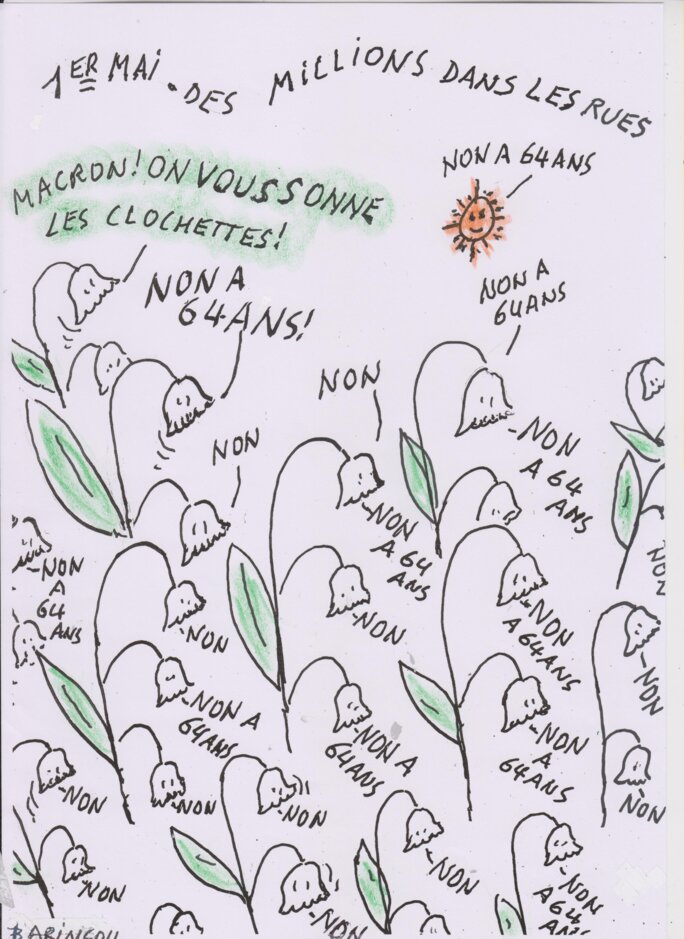 1ER MAI. DES MILLIONS DANS LES RUES
MACRON! ON VOUS SONNE
LES CLOCHETTES!
NON A 64 ANS
NON A
64 ANS!
NON A
64 ANS
NON
NON
NON
A 64
ANS
NON
A 64
ANS
NON
A
64
ANS
NON
NON
NON
A 64 ANS
NON
NON
NON A
64 ANS
NON A
64 ANS
NON
A
64 ANS
NON
NON
NON
NON
NON
NON
NON
NON
NON
A 64
ANS
BARINCOU